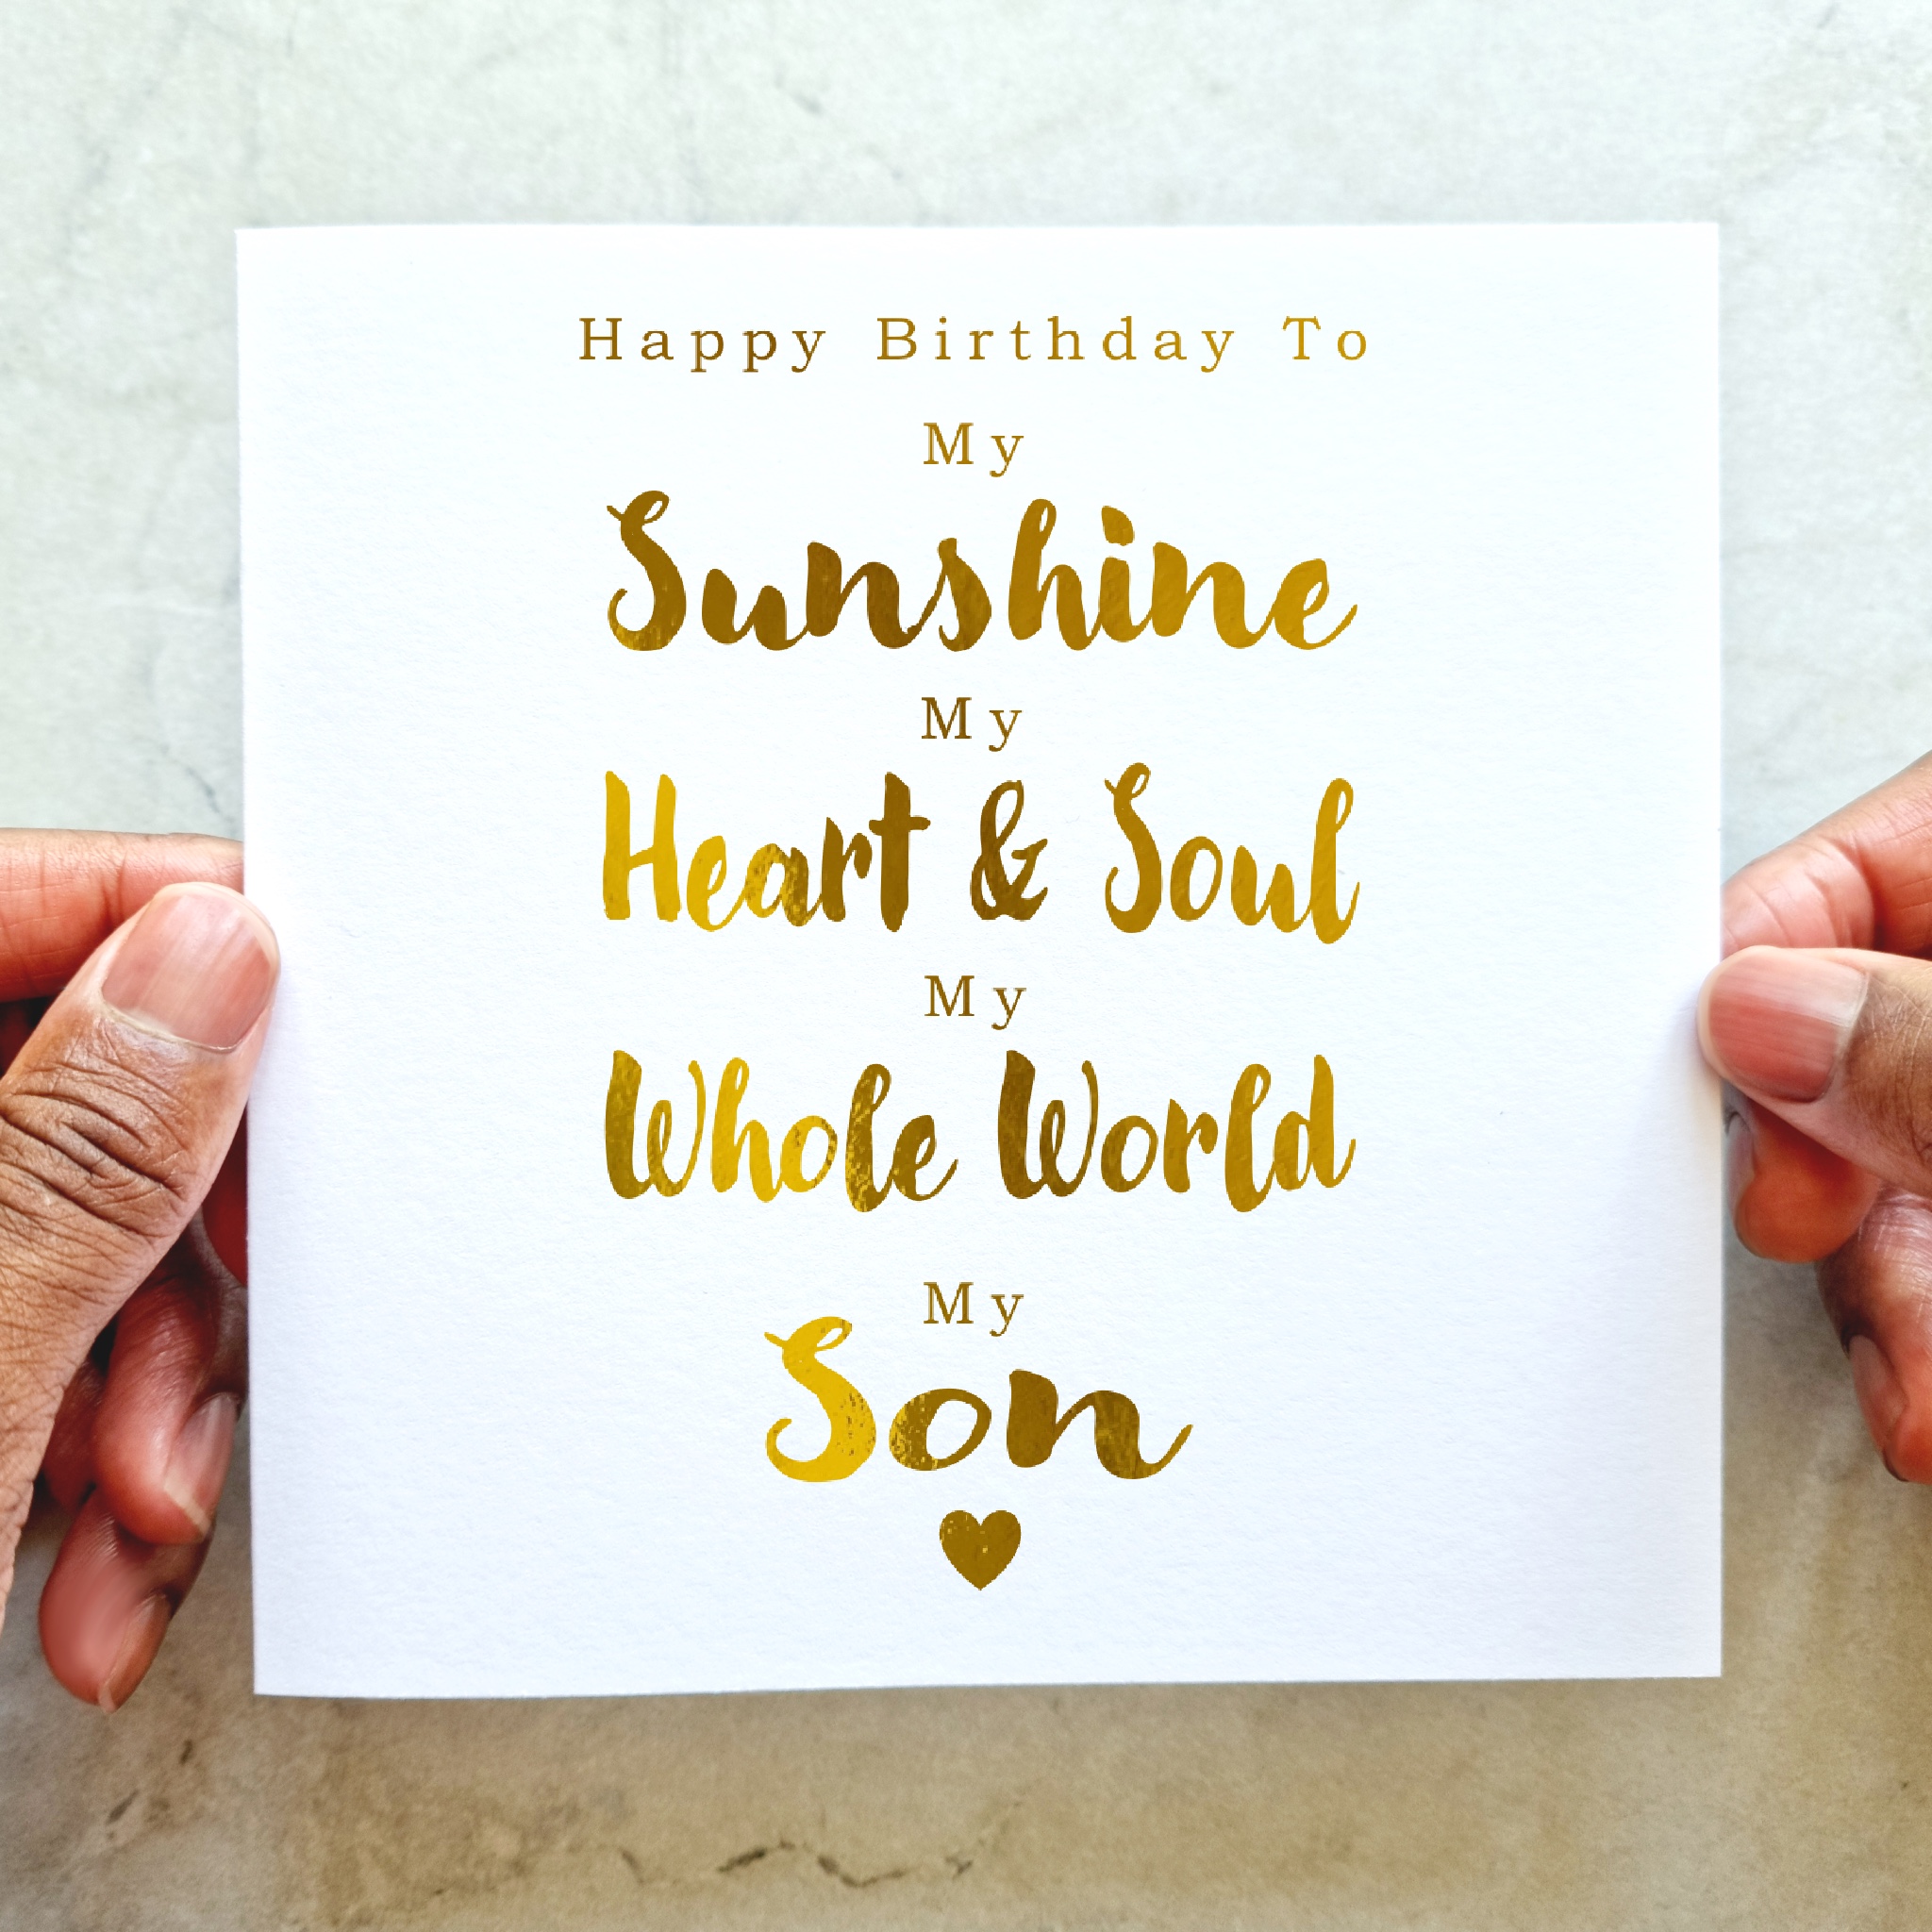 Happy Birthday To
My
Sunshine
My
Heart & Soul
My
Whole World
My
Son